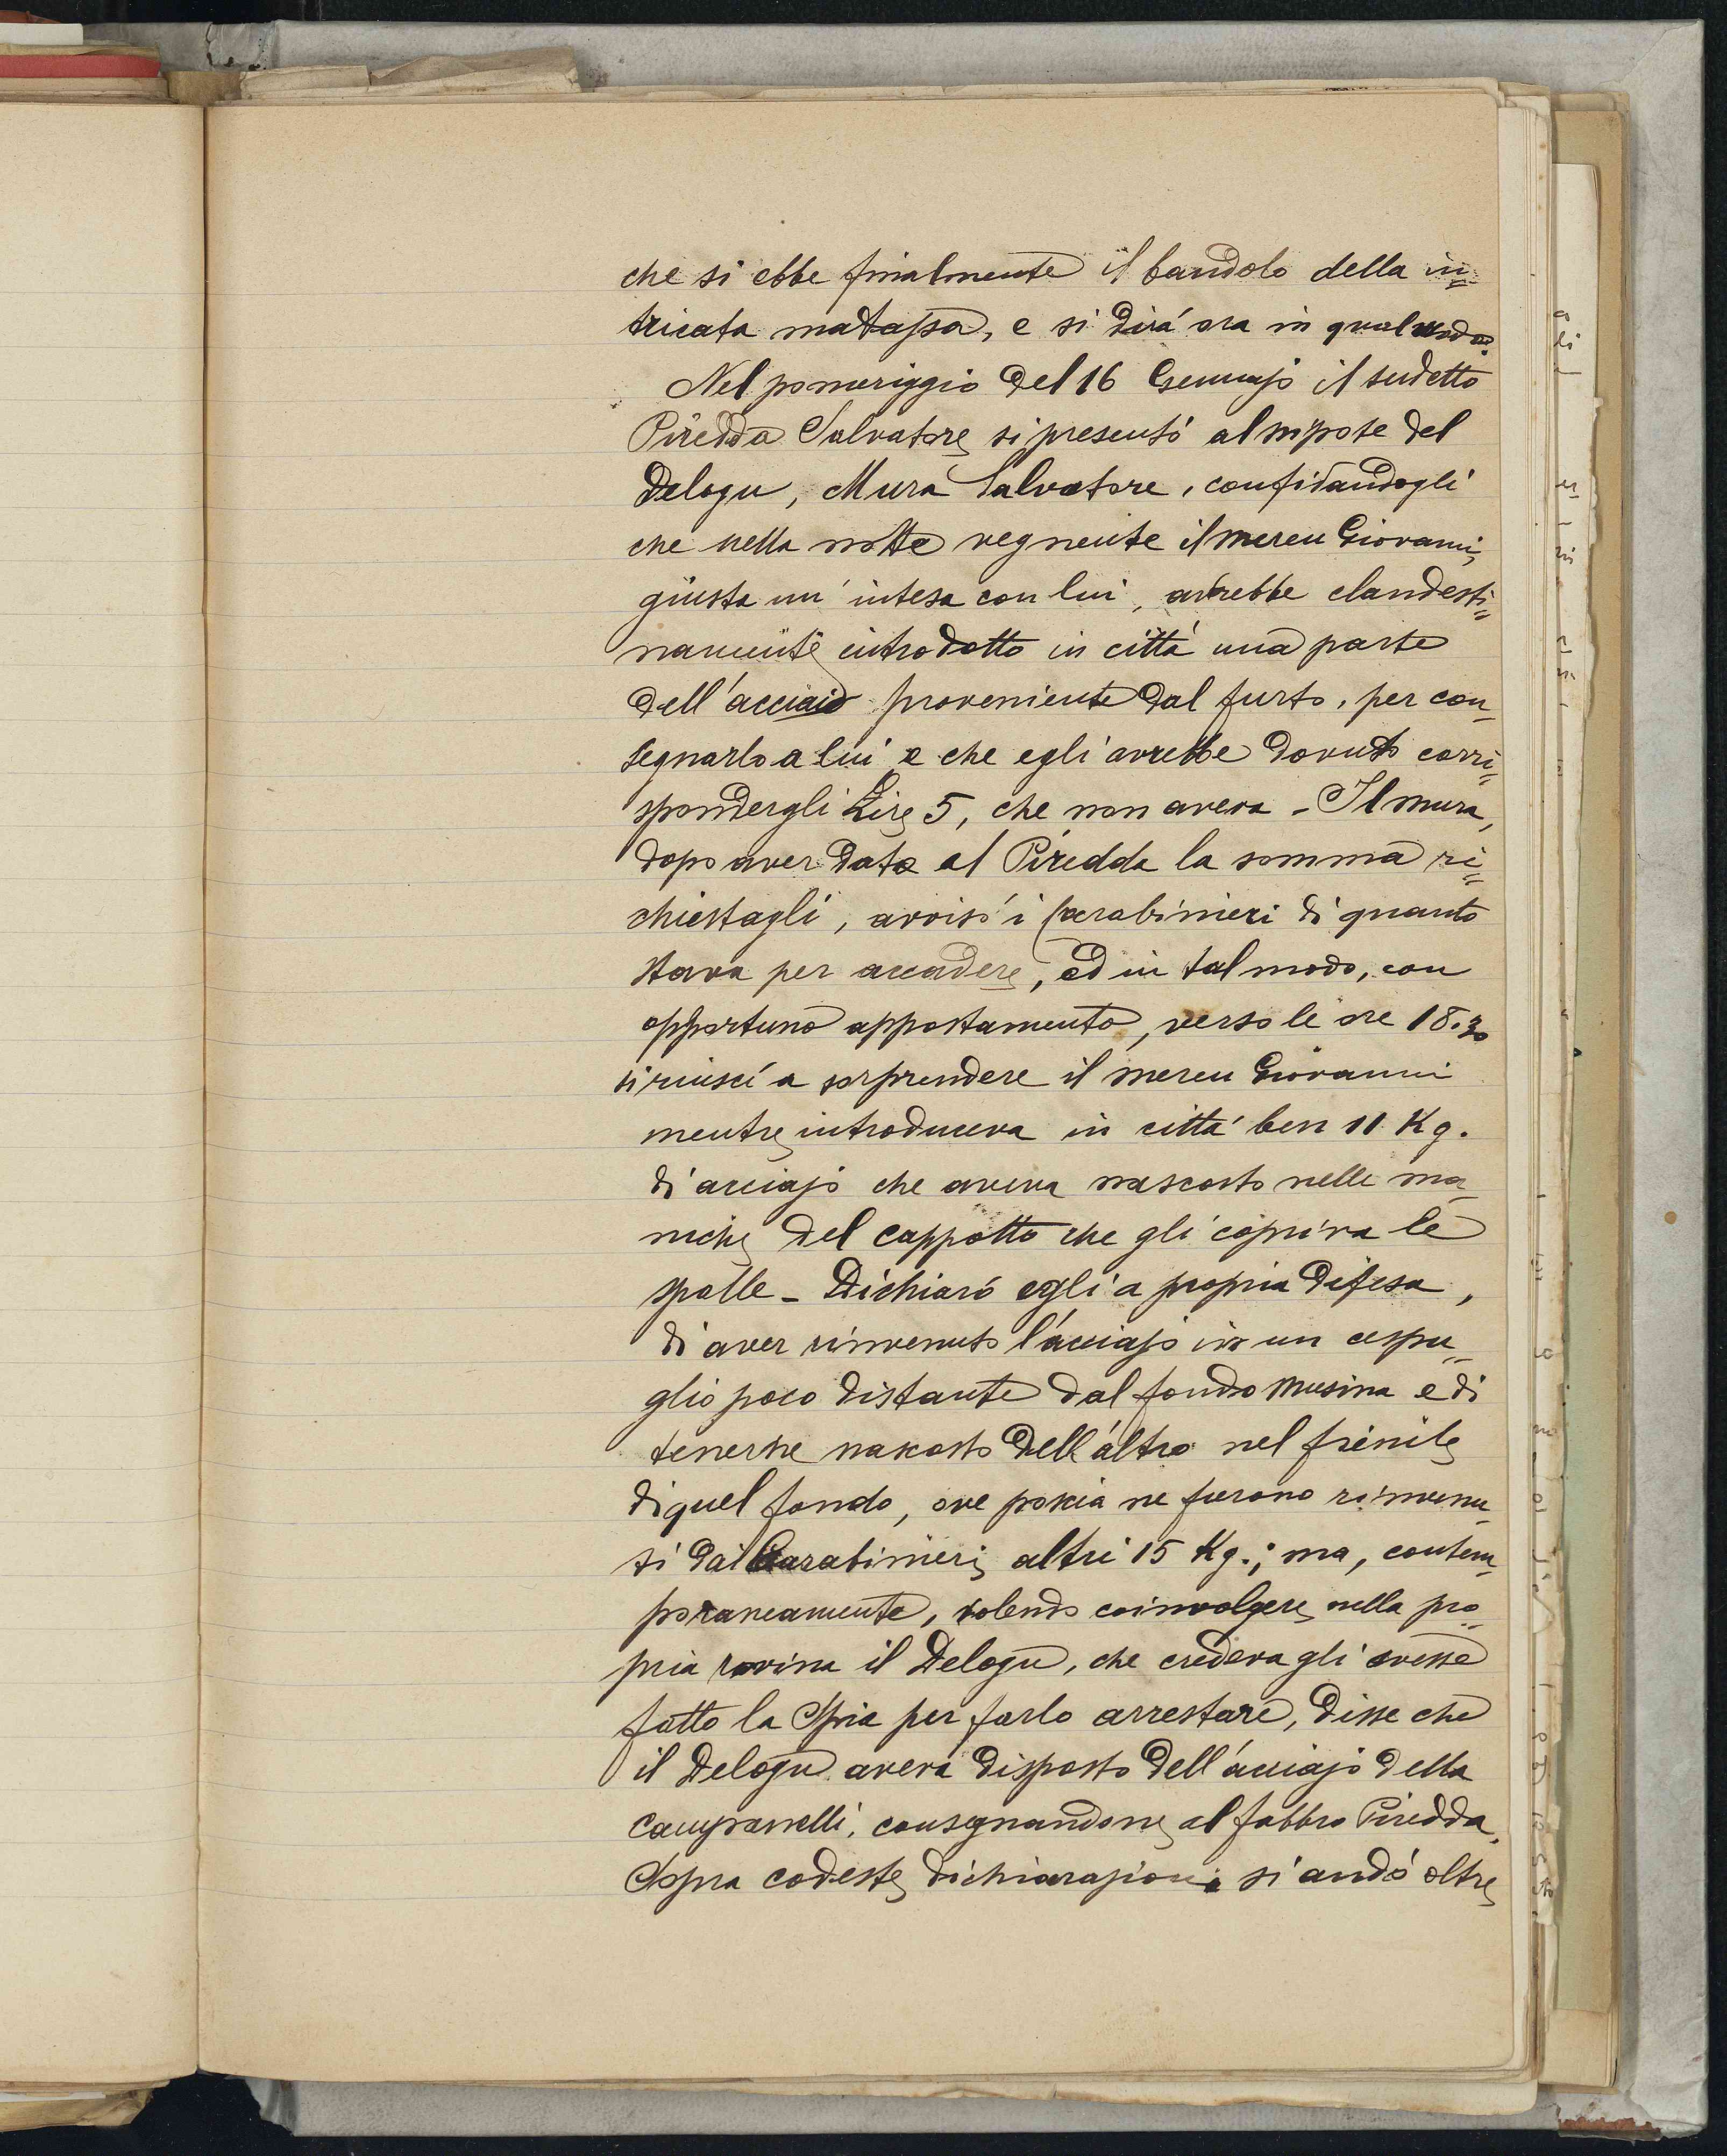 che si ebbe finalmente il bandolo della in=
tricata matassa, e si dirá ora in qual modo.
Nel pomeriggio del 16 Gennajo il sudetto
Piredda Salvatore si presentó al nipote del
Delogu, Mura Salvatore, confidandogli
che nella notte vegnente il Mereu Giovanni,
giusta un'intesa con lui, avrebbe clandesti=
namente introdotto in cittá una parte
dell'acciaio proveniente dal furto, per con=
segnarlo a lui e che egli avrebbe dovuto corri=
spondergli Lire 5, che non aveva - Il Mura,
dopo aver dato al Piredda la somma ri=
chiestagli, avvisó i Carabinieri di quanto
stava per accadere, ed in tal modo, con
opportuno appostamento, verso le ore 18.30
si riuscí a sorprendere il Mereu Giovanni
mentre introduceva in cittá ben 11 Kg.
di acciajo che aveva nascosto nelle ma=
niche del cappotto che gli copriva le
spalle - Dichiaró egli a propria difesa,
di aver rinvenuto l'acciajo in un cespu=
glio poco distante dal fondo Musina e di
tenerne nascosto dell'altro nel fienile
di quel fondo, ove poscia ne furono rinvenu=
ti dai Carabinieri altri 15 Kg.; ma, contem=
poraneamente, volendo coinvolgere nella pro=
pria rovina il Delogu, che credeva gli avesse
fatto la spia per farlo arrestare, disse che
il Delogu aveva disposto dell'acciajo della
Campanelli, consegnandone al fabbro Piredda.
Sopra codeste dichiarazioni si andó oltre